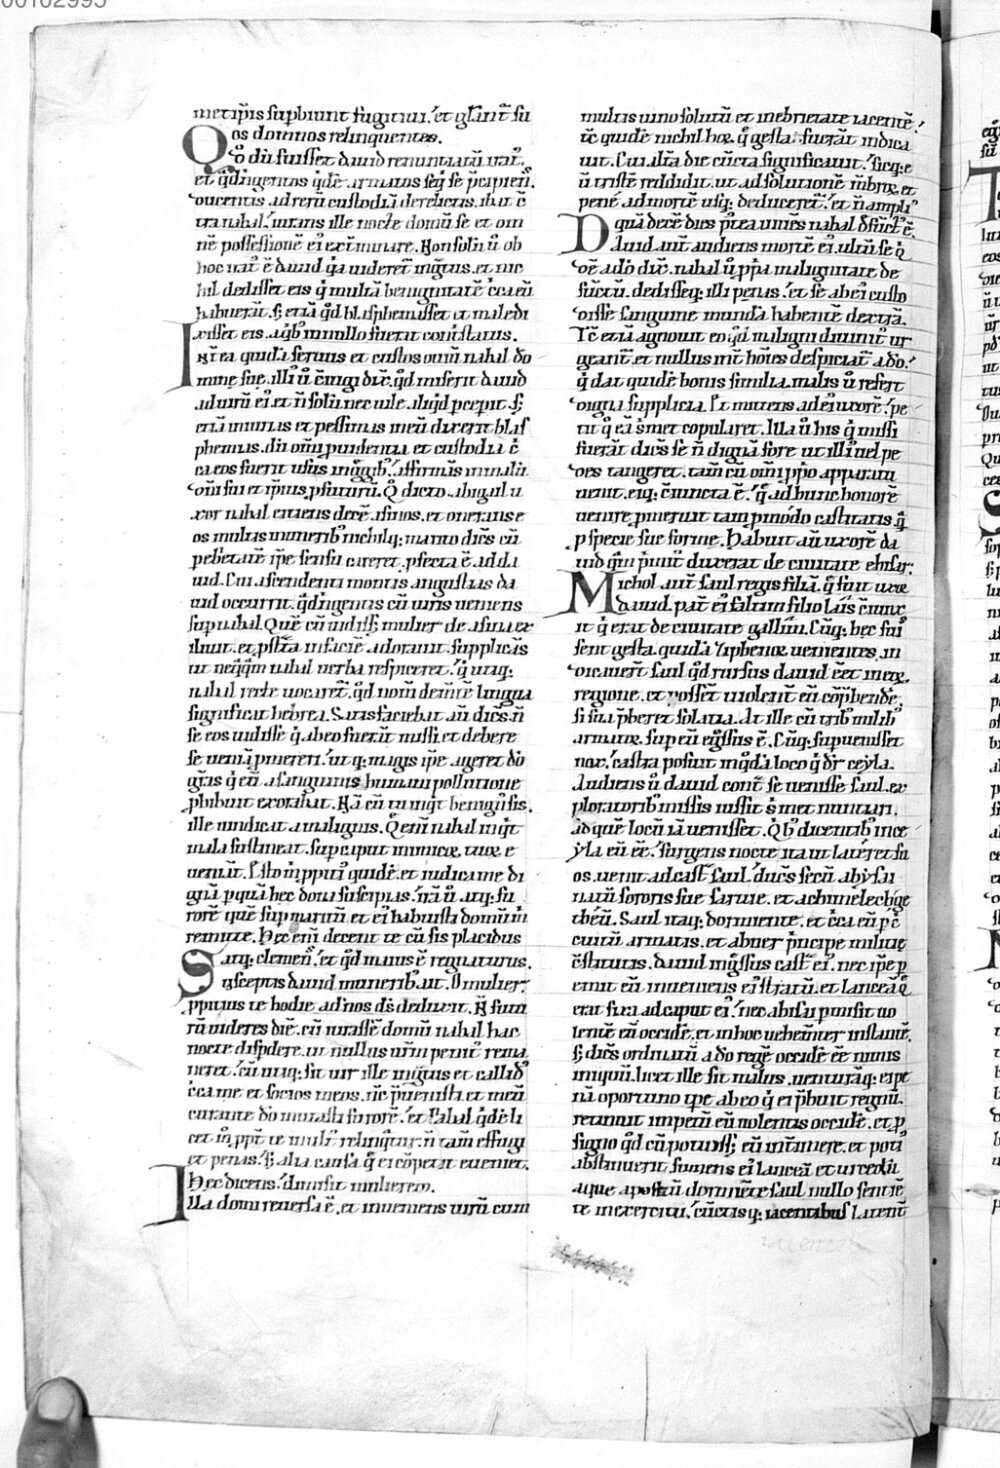 metip̅is sup̲biunt fugitiui. et gl̅ant̅ su
os dominos relinquentes.
Qo̅ du̅ fuisset dauid renuntiatu̅ irat᷒.
et q̇dringentos q̇de̅ armatos seq̇ se p̲cipien̅.
ducentis ad reru̅ custodia̅ derelictis. ibat c̅
tra nabal. iurans ille nocte domu̅ se et om
ne̅ possessione̅ ei᷒ exterminare. Non solu̅ u̅ ob
hoc irat᷒ e̅ dauid q̇a uideret᷒ ingrat᷒us. et nic
hil dedisset eis q̇ multa̅ benignitate̅ c̅ca eu̅
habuera̅t. s; etia̅ q̇d blasphemisset et maledi
xisset eis. a q̇b᷒ in nullo fuerat contristatus.
Int̅ea quida̅ seruus et custos ouiu̅ nabal do
mine sue. illi᷒ u̅ c̅iugi dix̅. q̇d miserit dauid
ad uiru̅ ei᷒. et n̅ solu̅. nec uile. aliq̇d p̲cepit. s;
etia̅ iniurias et pessimus ineu̅ dixerit blas
phemias. du̅ om̅i prudentia et custodia c̅
ca eos fuerit usus in greg̅ib᷒. affirma̅s in mali̅
om̅i sui et ip̅ius p̲futuru̅. Q̇ dicto. abigail u
xor nabal excitens dece̅ asinos. et onerans e
os multis munerib᷒ nichilq; marito dice̅s cu̅
p̲ ebrietate̅ ip̅e sensu careret. p̲fecta e̅ ad da
uid. Cui ascendenti montis angustias da
uid occurrit. q̇dringentis cu̅ uiris ueniens
sup̲ nabal. Que̅ cu̅ uidiss; mulier de asina ex
iliuit. et p̲strata in facie̅ adorauit. supplica̅s
ut neq̇q̇m nabal uerba respiceret. q̇ utiq;
nabal recte uocaret᷒. q̇d nom̅ deme̅te̅ lingua
significat hebrea. Satisfaciebat au̅ dice̅s. n̅
se eos uidisse q̇ ab eo fuera̅t missi. et debere
se uenia̅ p̲mereri. ut q; magis ip̅e ageret do̅
gra̅s q̇ eu̅ a sanguinis humani pollutione
p̲hibuit exorabat. Na̅ cu̅ tu inq̇t benign᷒ sis.
ille uindicat a malignis. Q̇ eni̅ nabal inq̇t
mala sustineat. sup̲ caput inimicoꝝ tuoꝝ e
ueniat. Esto m̅ ppitiu᷒ quide̅. et iudica me di
gna̅ p̲ qua̅ hec dona suscipias. ira̅ u̅ atq; fu
rore̅ que̅ sup̲ maritu̅ et ei᷒ habuisti domu̅ m̅
remitte. Hec eni̅ decent te cu̅ sis placidus
atq; clemen̅s. et q̇d maius e̅ regnaturus.
Susceptis dauid munerib᷒ ait. O mulier
ppitius te hodie ad nos d̅s deduxit. N̅ futu
ru̅ uideres die̅. cu̅ iurasse̅ domu̅ nabal hac
nocte disp̲dere. ut nullus uiru̅ penit᷒ rema
neret. Cu̅ itaq; sit uir ille ingrat᷒us et callid᷒
c̅ca me et socios meos. nc̅ p̲uenisti. et meu̅
curante do̅ mitasti furore̅. et nabal q̇de̅ li
cet m̅ ppt̅ te mulier relinquat᷒. n̅ tam̅ effugi
et penas. s; alia causa q̇ ei co̅petat eueniet.
Hec dicens. dimisit mulierem.
Illa domi reuersa e̅. et inueniens uiru̅ cum
multis uino solutu̅ et in ebrietate iacente̅.
tc̅ quide̅ nichil hoꝝ. q̇ gesta fuera̅t indica
uit. Cui altera̅ die cu̅cta significauit. sicq; e
u̅ triste̅ reddidit. ut ad solutione̅ me̅broꝝ et
pene̅ ad morte̅ usq; deduceret᷒. et n̅ ampli᷒
qua̅ dece̅ dies p᷒tea uiue̅s nabal defu̅ct᷒ e̅.
Dauid aut̅ audiens morte̅ ei᷒. ultu̅ se q̇
de̅ a do̅ dix̅. nabal u̅ p̲pria malignitate de
functu̅. dedisseq; illi penas. et se ab ei᷒ custo
disse sanguine munda̅ habente̅ dextra̅.
Tc̅ etia̅ agnouit eo q̇d maligni diuinit᷒ ur
geant᷒. et nullus int̅ ho̅ies despiciat᷒ a do̅.
q̇ dat quide̅ bonis similia. malis u̅ refert
digna supplicia. Et mittens ad ei᷒ uxore̅. pe
tit q̇ ea̅ s᷒ met copularet. Illa u̅ his q̇ missi
fuera̅t dice̅s se n̅ digna̅ fore ut illi᷒ uel pe
des tangeret. tam̅ cu̅ om̅i p̲prio apparatu
uenit. eiq; c̅iuncta e̅. q̇ ad hunc honore̅
uenire p̲meruit tam p̲ modo castitatis q̇
p̲ specie sue forme. Habuit au̅ uxore̅ da
uid q̇m p̲ri᷒ duxerat de ciuitate ebisar.
Michol aut̅ saul regis filia̅. q̇ fuit uxor
dauid. pat̅ ei᷒ faltum filio lais c̅iunx
it q̇ erat de ciuitate gallim̅. Cu̅q; hec fuis
sent gesta. quida̅ ziphenoꝝ uenientes. in
dicauer̅t saul q̇d rursus dauid e̅et in eoꝝ
regione. et posset uiolent̅ eu̅ co̅p̲hende̅.
si sua p̲beret solatia. At ille cu̅ trib᷒ milib᷒
armatoꝝ. sup̲ eu̅ eg̅ssus e̅. Cu̅q; sup̲uenisset
nox. castra posuit in q̇da̅ loco q̇ dr̅ ceyla.
Audiens u̅ dauid cont̅ se uenisse saul. ex
ploratorib᷒ missis iussit s᷒ met nuntiari.
ad que̅ locu̅ ia̅ uenisset. Q̇b᷒ dicentib᷒ in ce
yla eu̅ e̅e. surgens nocte ita ut lateret su
os. uenit ad cast̅ saul. duce̅s secu̅ abysai
natu̅ sororis sue saruie. et achimelech ge
theu̅. Saul itaq; dormiente. et c̅ca eu̅ p᷒ c̅
cuitu̅ armatis. et abner p̲ncipe militie
c̅stitutis. dauid ing̅ssus cast̅ ei᷒. nec ip̅e p̲
emit eu̅ inueniens ei᷒ stratu̅. et lancea̅ q̇
erat fixa ad caput ei᷒. nec abisai p̲misit uo
lente̅ eu̅ occide̅. et in hoc uehement̅ instante̅.
s; dice̅s ordinatu̅ a do̅ rege̅ occide̅ e̅e nimis
iniquu̅. licet ille sit malus. uentura̅q; ei pe
na̅ oportuno tp̅e ab eo q̇ ei p̲buit regnu̅.
retinuit impetu̅ eu̅ uolentis occide̅. et p̲
signo q̇d cu̅ potuiss; eu̅ int̅imere. et poti᷒
abstinuerit. sumens ei᷒ lancea̅ et urceolu̅
aque appositu̅ dormie̅te saul. nullo sentie̅
te in exercitu. cu̅ctisq; iacentibus latent᷒